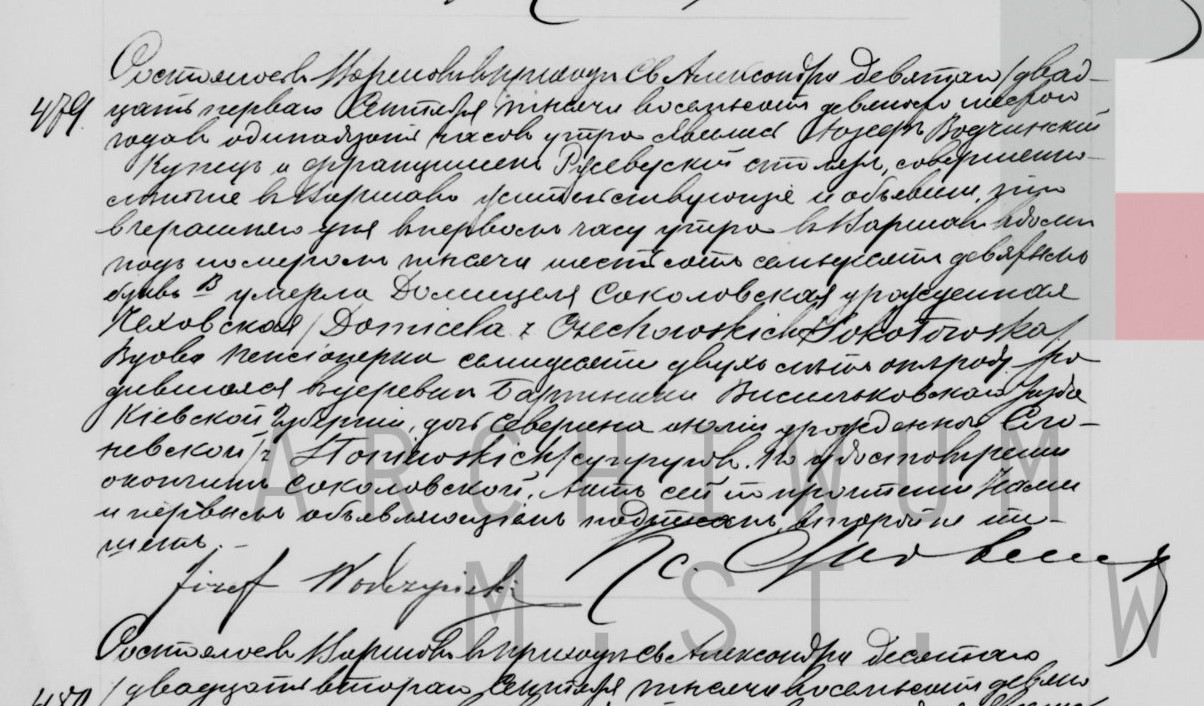 479.
Состоялось в Варшаве в приходе Св. Александра девятаго /двад-
цать перваго/ Сентября тысяча восемьсот девяносто шестого
года в одинадцать часов утра. Явились Иозеф Водчинский
Купец и Францишек столяр, совершенно-
летние в Варшаве жительствующие и объявили, что
вчерашняго дня в первом часу утра в Варшаве в доме
под номером тысяча шестьсот семьдесят девятым
буква В умерла Домицеля Соколовская урожденная
Чеховская /Domicela z Czechowskich Sokołowska/
Вдова Пенсионерка семидесяти двух лет от роду, ро-
дившаяся в деревни уезда
Киевской Губернии, дочь Северина и Юлии урожденной Сло-
невской /z Słoniewskich/ супругов. По удостоверении
о кончине Соколовской, Акт сей по прочтении Нами
и первым объявляющим подписан, второй не пи-
шет. -
Józef Wodczyński Кс.
Состоялось в Варшаве в приходе Св. Александра десятаго
480 /двадцать втораго/ Сентября тысяча восемьсот девяно
ARCHIWUM
M.ST. W